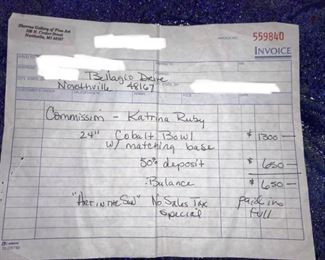 Sherrus Gallery of Fine Art
108 N. Center Street
Northville, MI 48167
INVOICE NO. 559840
INVOICE
Bellagio Drive
Northville 48167
Commission - Katrina Ruby
24" Cobalt Bowl $1300-
w/ matching base
50% deposit $650-
Balance $650-
"Art in the Sun" No Sales Tax paid in
Special Full